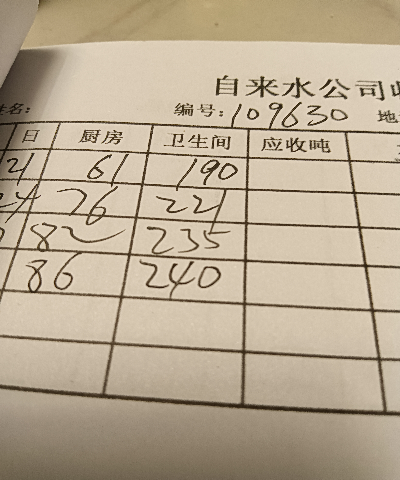 自来水公司
姓名: 编号: 109630 地
日 厨房 卫生间 应收吨
21 61 190
76 221
82 235
86 240